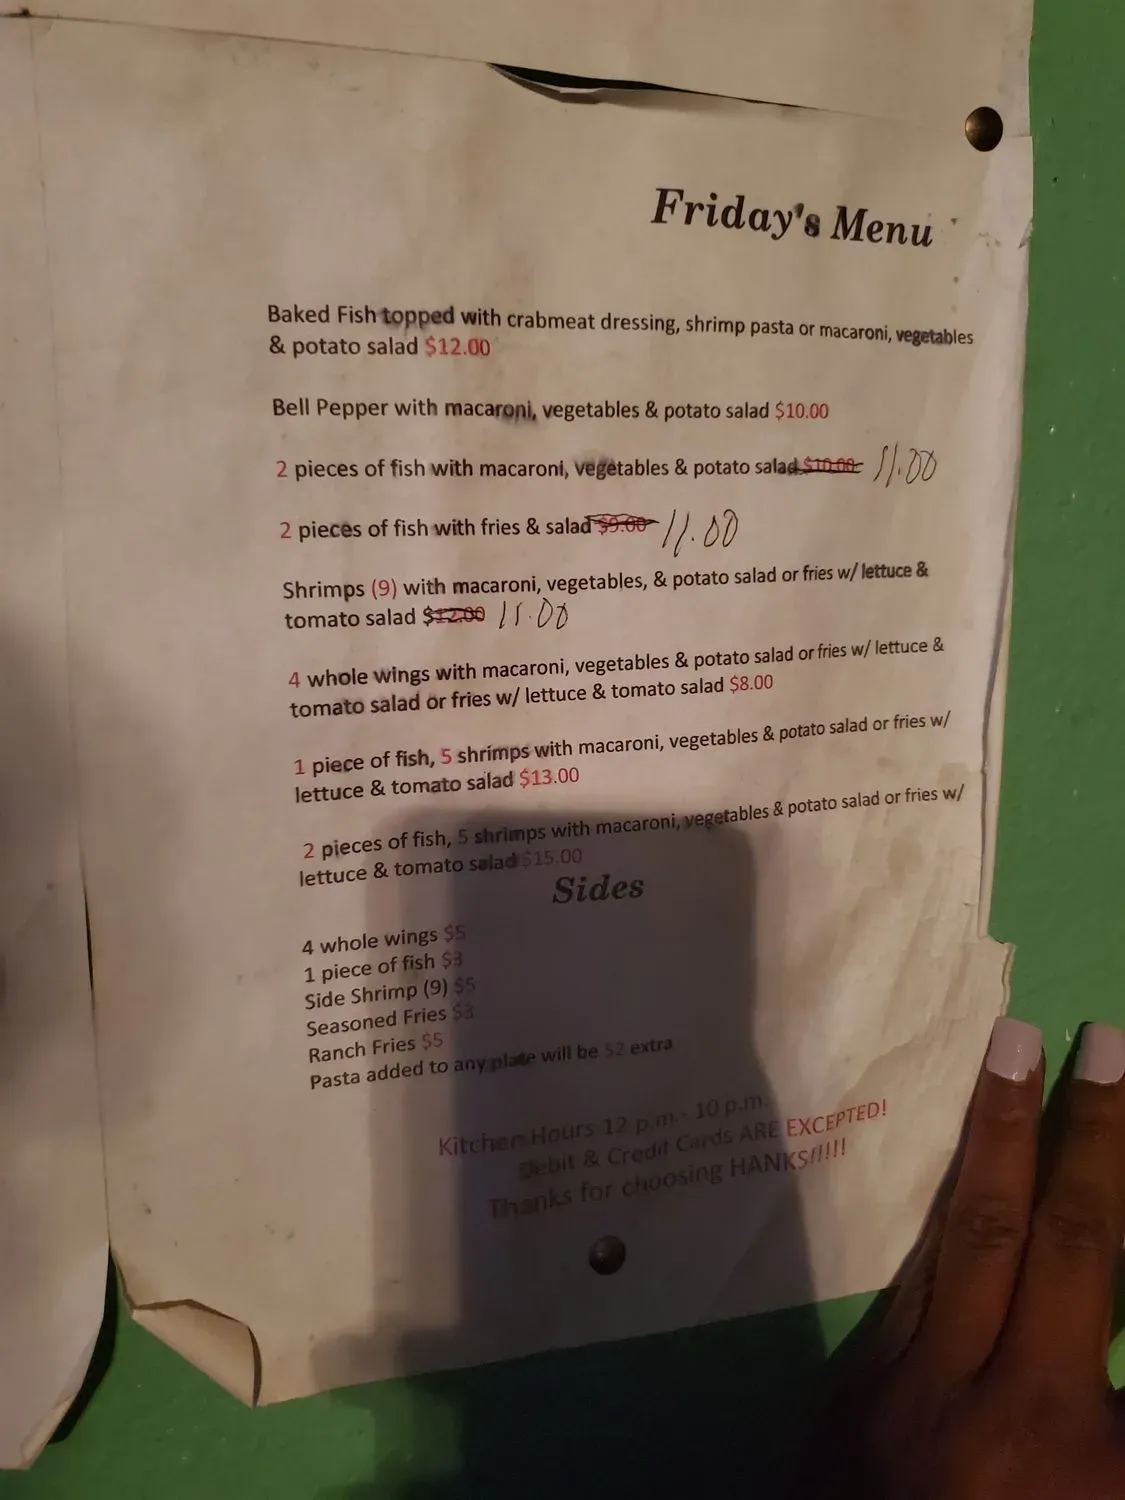 Friday's Menu
Baked Fish topped with crabmeat dressing, shrimp pasta or macaroni, vegetables
& potato salad $12.00
Bell Pepper with macaroni, vegetables & potato salad $10.00
2 pieces of fish with macaroni, vegetables & potato salad $10.00 11.00
2 pieces of fish with fries & salad $9.00 11.00
Shrimps (9) with macaroni, vegetables, & potato salad or fries w/ lettuce &
tomato salad $12.00 11.00
4 whole wings with macaroni, vegetables & potato salad or fries w/ lettuce &
tomato salad or fries w/ lettuce & tomato salad $8.00
1 piece of fish, 5 shrimps with macaroni, vegetables & potato salad or fries w/
lettuce & tomato salad $13.00
2 pieces of fish, 5 shrimps with macaroni, vegetables & potato salad or fries w/
lettuce & tomato salad $15.00
Sides
4 whole wings $5
1 piece of fish $3
Side Shrimp (9) $5
Seasoned Fries $3
Ranch Fries $5
Pasta added to any plate will be $2 extra
Kitchen Hours 12 p.m.- 10 p.m.
Debit & Credit Cards ARE EXCEPTED!
Thanks for choosing HANKS!!!!!